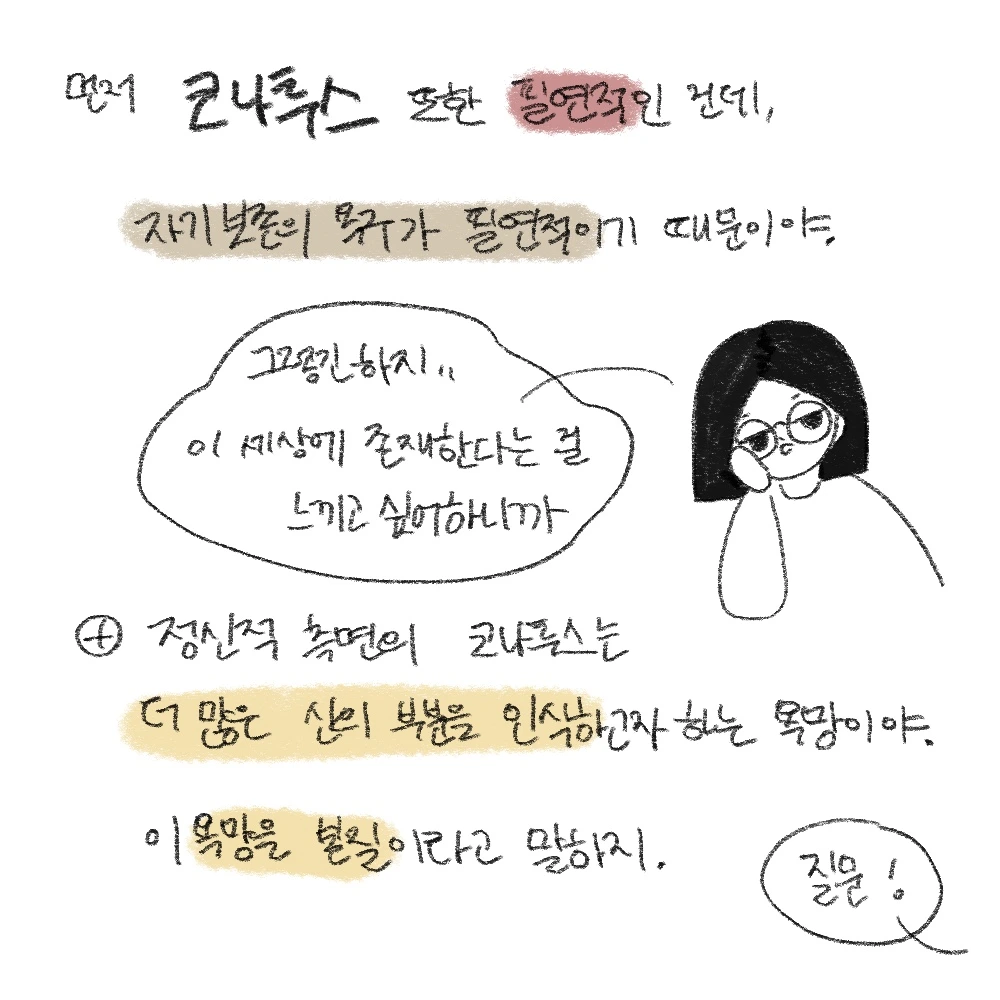 먼저 코나투스 또한 필연적인 건데,
자기보존의 욕구가 필연적이기 때문이야.
그렇긴하지..
이 세상에 존재한다는 걸
느끼고 싶어하니까
⊕ 정신적 측면의 코나투스는
더 많은 신의 부분을 인식하고자 하는 욕망이야.
이 욕망을 본질이라고 말하지.
질문!